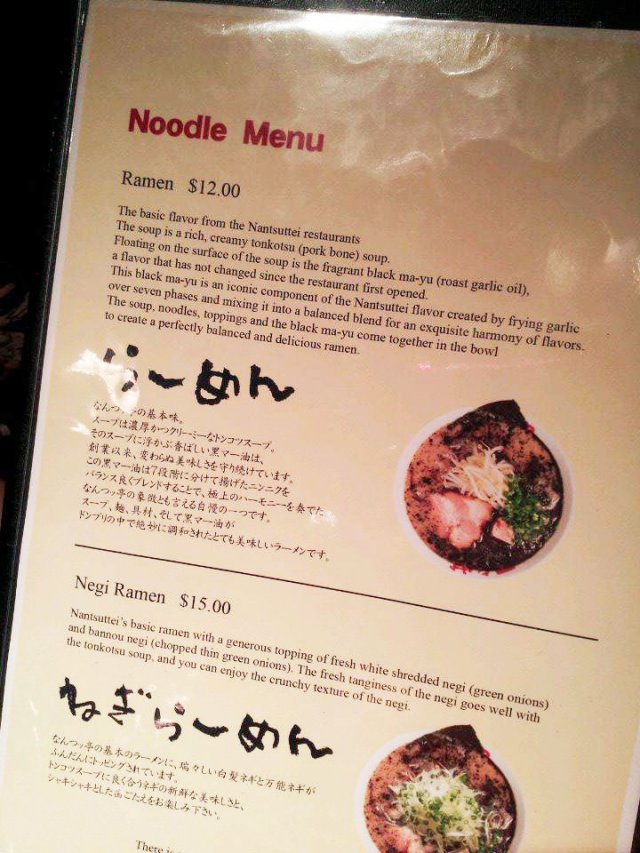 Noodle Menu
Ramen $12.00
The basic flavor from the Nantsuttei restaurants
The soup is a rich, creamy tonkotsu (pork bone) soup.
Floating on the surface of the soup is the fragrant black ma-yu (roast garlic oil),
a flavor that has not changed since the restaurant first opened.
This black ma-yu is an iconic component of the Nantsuttei flavor created by frying garlic
over seven phases and mixing it into a balanced blend for an exquisite harmony of flavors.
The soup, noodles, toppings and the black ma-yu come together in the bowl
to create a perfectly balanced and delicious ramen.
らーめん
なんつッ亭の基本味。
スープは濃厚かつクリーミーなトンコツスープ。
そのスープに浮かぶ香ばしい黒マー油は、
創業以来、変わらぬ美味しさを守り続けています。
この黒マー油は7段階に分けて揚げたニンニクを
バランス良くブレンドすることで、極上のハーモニーを奏でた
なんつッ亭の象徴とも言える自慢の一つです。
スープ、麺、具材、そして黒マー油が
ドンブリの中で絶妙に調和されたとても美味しいラーメンです。
Negi Ramen $15.00
Nantsuttei's basic ramen with a generous topping of fresh white shredded negi (green onions)
and bannou negi (chopped thin green onions). The fresh tanginess of the negi goes well with
the tonkotsu soup, and you can enjoy the crunchy texture of the negi.
ねぎらーめん
なんつッ亭の基本のラーメンに、瑞々しい白髪ネギと万能ネギが
ふんだんにトッピングされています。
トンコツスープに良く合うネギの新鮮な美味しさと、
シャキシャキとした歯ごたえをお楽しみ下さい。
There is